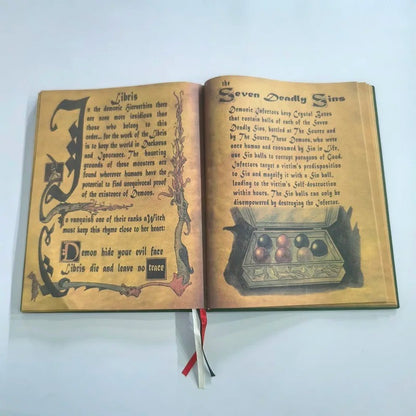 Libris
In the demonic hierarchies there
are none more insidious than
those who belong to this
order... for the work of the Libris
is to keep the world in Darkness
and Ignorance. The haunting
grounds of these murderers are
found wherever humans have the
potential to find unequivocal proof
of the existence of Demons.
To vanquish one of their ranks a Witch
must keep this rhyme close to her heart:
Demon hide your evil face
Libris die and leave no trace
the
Seven Deadly Sins
Demonic Infectors keep Crystal Boxes
that contain balls of each of the Seven
Deadly Sins, bottled at The Source and
by The Source. These Demons, who were
once human and consumed by Sin in Life,
use Sin balls to corrupt paragons of Good.
Infectors target a victim's predisposition
to Sin and magnify it with a Sin ball,
leading to the victim's Self-destruction
within hours. The Sin balls can only be
disempowered by destroying the Infector.